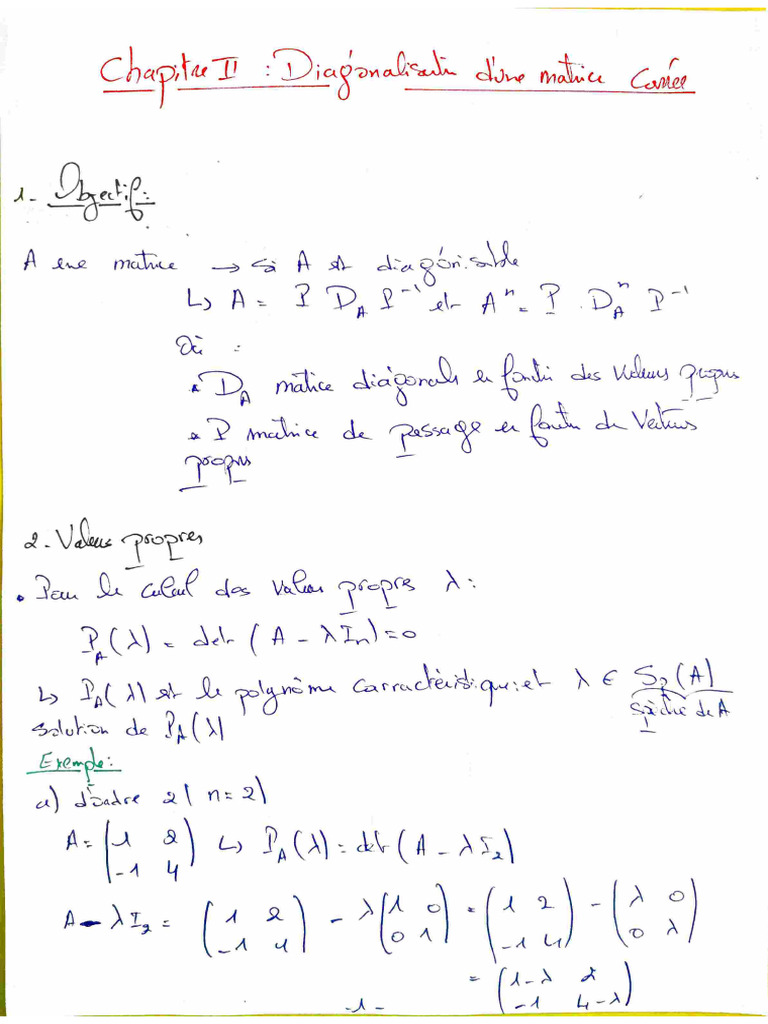 Chapitre II : Diagonalisation d'une matrice Carrée
1- Objectif:
A une matrice → si A est diagonisable
↳ A = P D_A P⁻¹ et Aⁿ = P . D_Aⁿ P⁻¹
Où :
• D_A matrice diagonale en fonction des valeurs propres
• P matrice de passage en fonction de Vecteurs
propres
2- Valeurs propres
• Pour le calcul des valeurs propres λ :
P_A(λ) = det (A - λI_n) = 0
↳ P_A(λ) est le polynôme carractéristique et λ ∈ Sp(A)
solution de P_A(λ) de A
Exemple:
a) d'ordre 2 ( n = 2)
A = ( 1 2 ; -1 4 ) ↳ P_A(λ) = det (A - λI_2)
A - λI_2 = ( 1 2 ; -1 4 ) - λ ( 1 0 ; 0 1 ) = ( 1 2 ; -1 4 ) - ( λ 0 ; 0 λ )
= ( 1-λ 2 ; -1 4-λ )
-1-